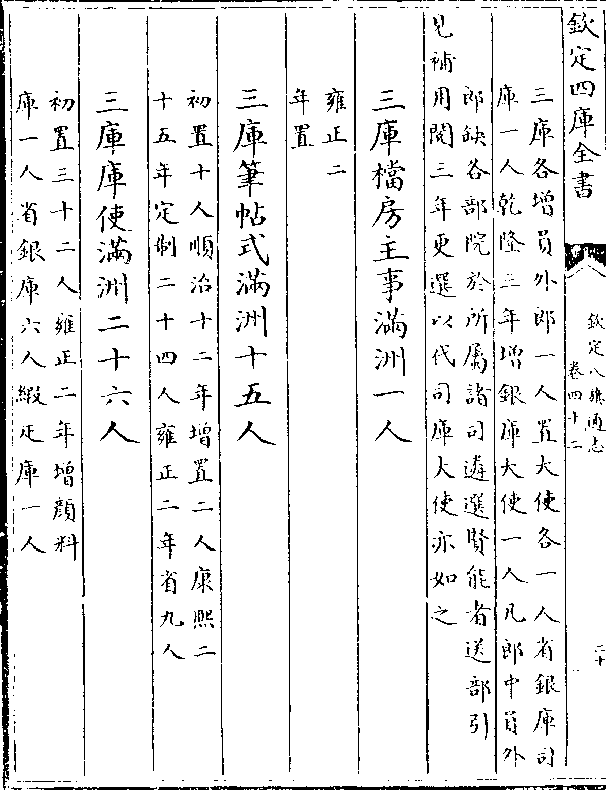 欽定四庫全書
欽定八旗通志
卷四十二
二十
三庫各增員外郎一人置大使各一人省銀庫司
庫一人乾隆三年增銀庫大使一人凡郎中員外
郎缺各部院於所屬諸司遴選賢能者送部引
見補用閱三年更選以代司庫大使亦如之
三庫檔房主事滿洲一人
雍正二
年置
三庫筆帖式滿洲十五人
初置十人順治十二年增置二人康熙二
十五年定制二十四人雍正二年省九人
三庫庫使滿洲二十六人
初置三十二人雍正二年增顏料
庫一人省銀庫六人緞疋庫一人